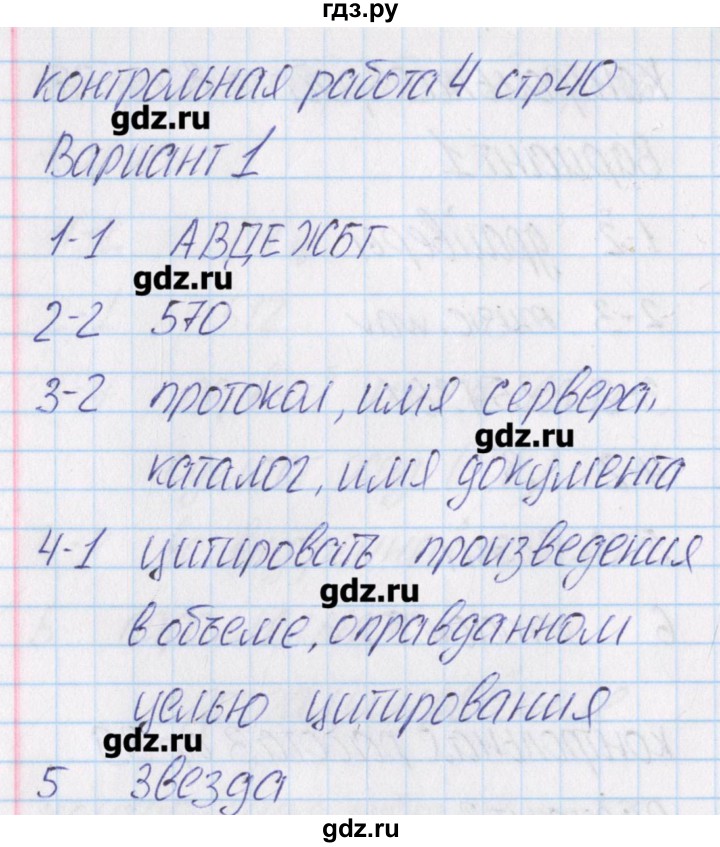 гдз.ру
контрольная работа 4 стр 40
gdz.ru
Вариант 1
1-1 АВДЕЖБГ
gdz.ru
2-2 570
3-2 протокол, имя сервера,
gdz.ru
каталог, имя документа
4-1 цитировать произведения
gdz.ru
в объеме, оправданном
целью цитирования
gdz.ru
5 Звезда
gdz.ru